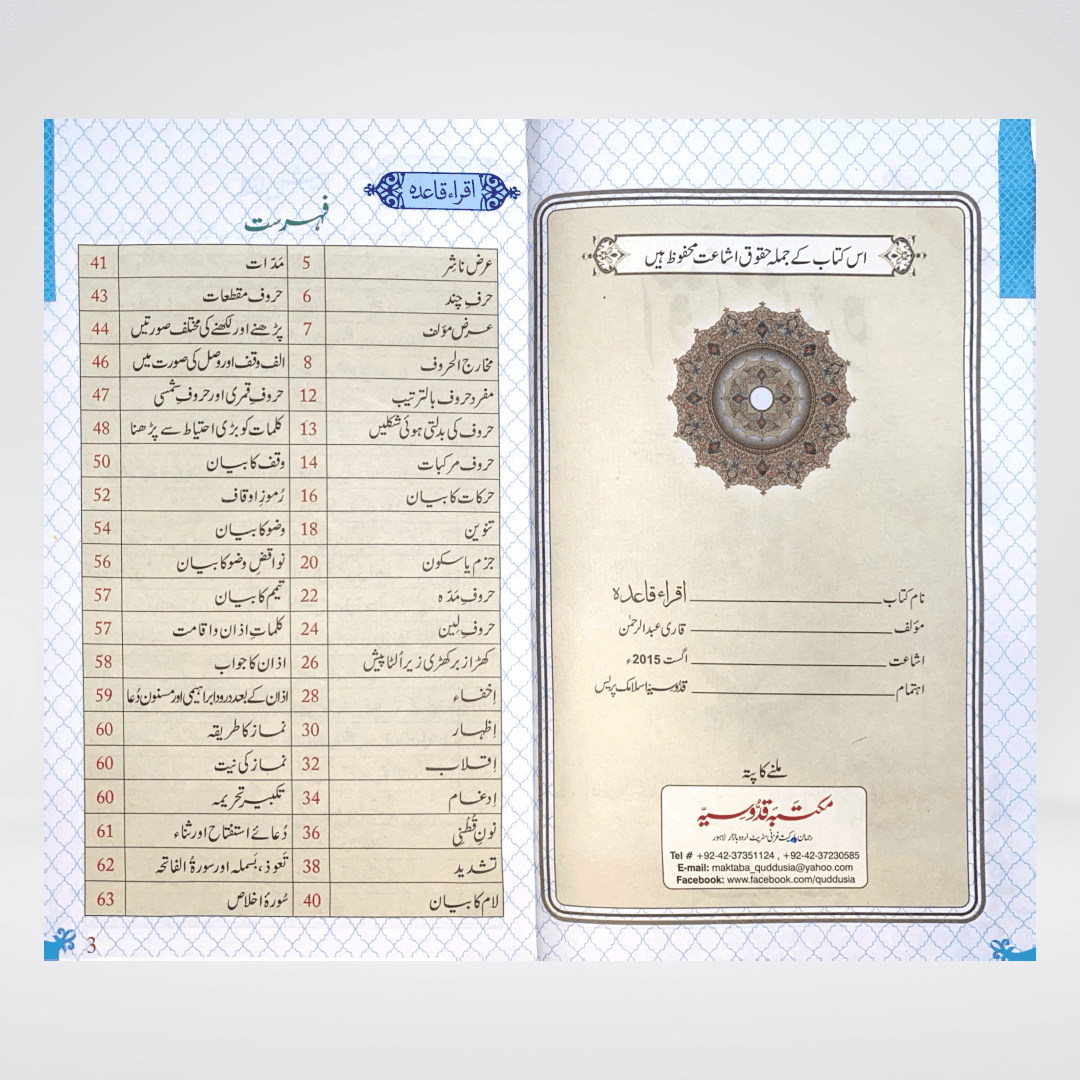 اس کتاب کے جملہ حقوق اشاعت محفوظ ہیں
نام کتاب ــــــــ اقراء قاعدہ
مؤلف ــــــــ قاری عبدالرحمٰن
اشاعت ــــــــ اگست 2015ء
اہتمام ــــــــ قدوسیہ اسلامک پریس
ملنے کا پتہ
مکتبہ قدُّوسیہّ
رحمان مارکیٹ غزنی سٹریٹ اردو بازار لاہور
Tel # +92-42-37351124 , +92-42-37230585
E-mail: maktaba_quddusia@yahoo.com
Facebook: www.facebook.com/quddusia
اقراء قاعدہ
فہرست
عرض ناشِر 5 مَدّات 41
حرفِ چند 6 حروف مقطعات 43
عرض مؤلف 7 پڑھنے اور لکھنے کی مختلف صورتیں 44
مخارج الحروف 8 الف وقف اور وصل کی صورت میں 46
مفرد حروف بالترتیب 12 حروفِ قمری اور حروفِ شمسی 47
حروف کی بدلتی ہوئی شکلیں 13 کلمات کو بڑی احتیاط سے پڑھنا 48
حروف مرکبات 14 وقف کا بیان 50
حرکات کا بیان 16 رُموزِ اوقاف 52
تنوین 18 وضو کا بیان 54
جزم یا سکون 20 نواقضِ وضو کا بیان 56
حروفِ مَدّہ 22 تیمم کا بیان 57
حروفِ لِین 24 کلماتِ اذان و اقامت 57
کھڑا زبر کھڑی زیر اُلٹا پیش 26 اذان کا جواب 58
اِخفاء 28 اذان کے بعد درود ابراہیمی اور مسنون دُعا 59
اِظہار 30 نماز کا طریقہ 60
اِقلاب 32 نماز کی نیت 60
اِدغام 34 تکبیرِ تحریمہ 60
نونِ قُطنِی 36 دُعائے استفتاح اور ثناء 61
تشدید 38 تَعوذ، بَسملہ اور سورۃُ الفاتحہ 62
لام کا بیان 40 سُورۂ اخلاص 63
3